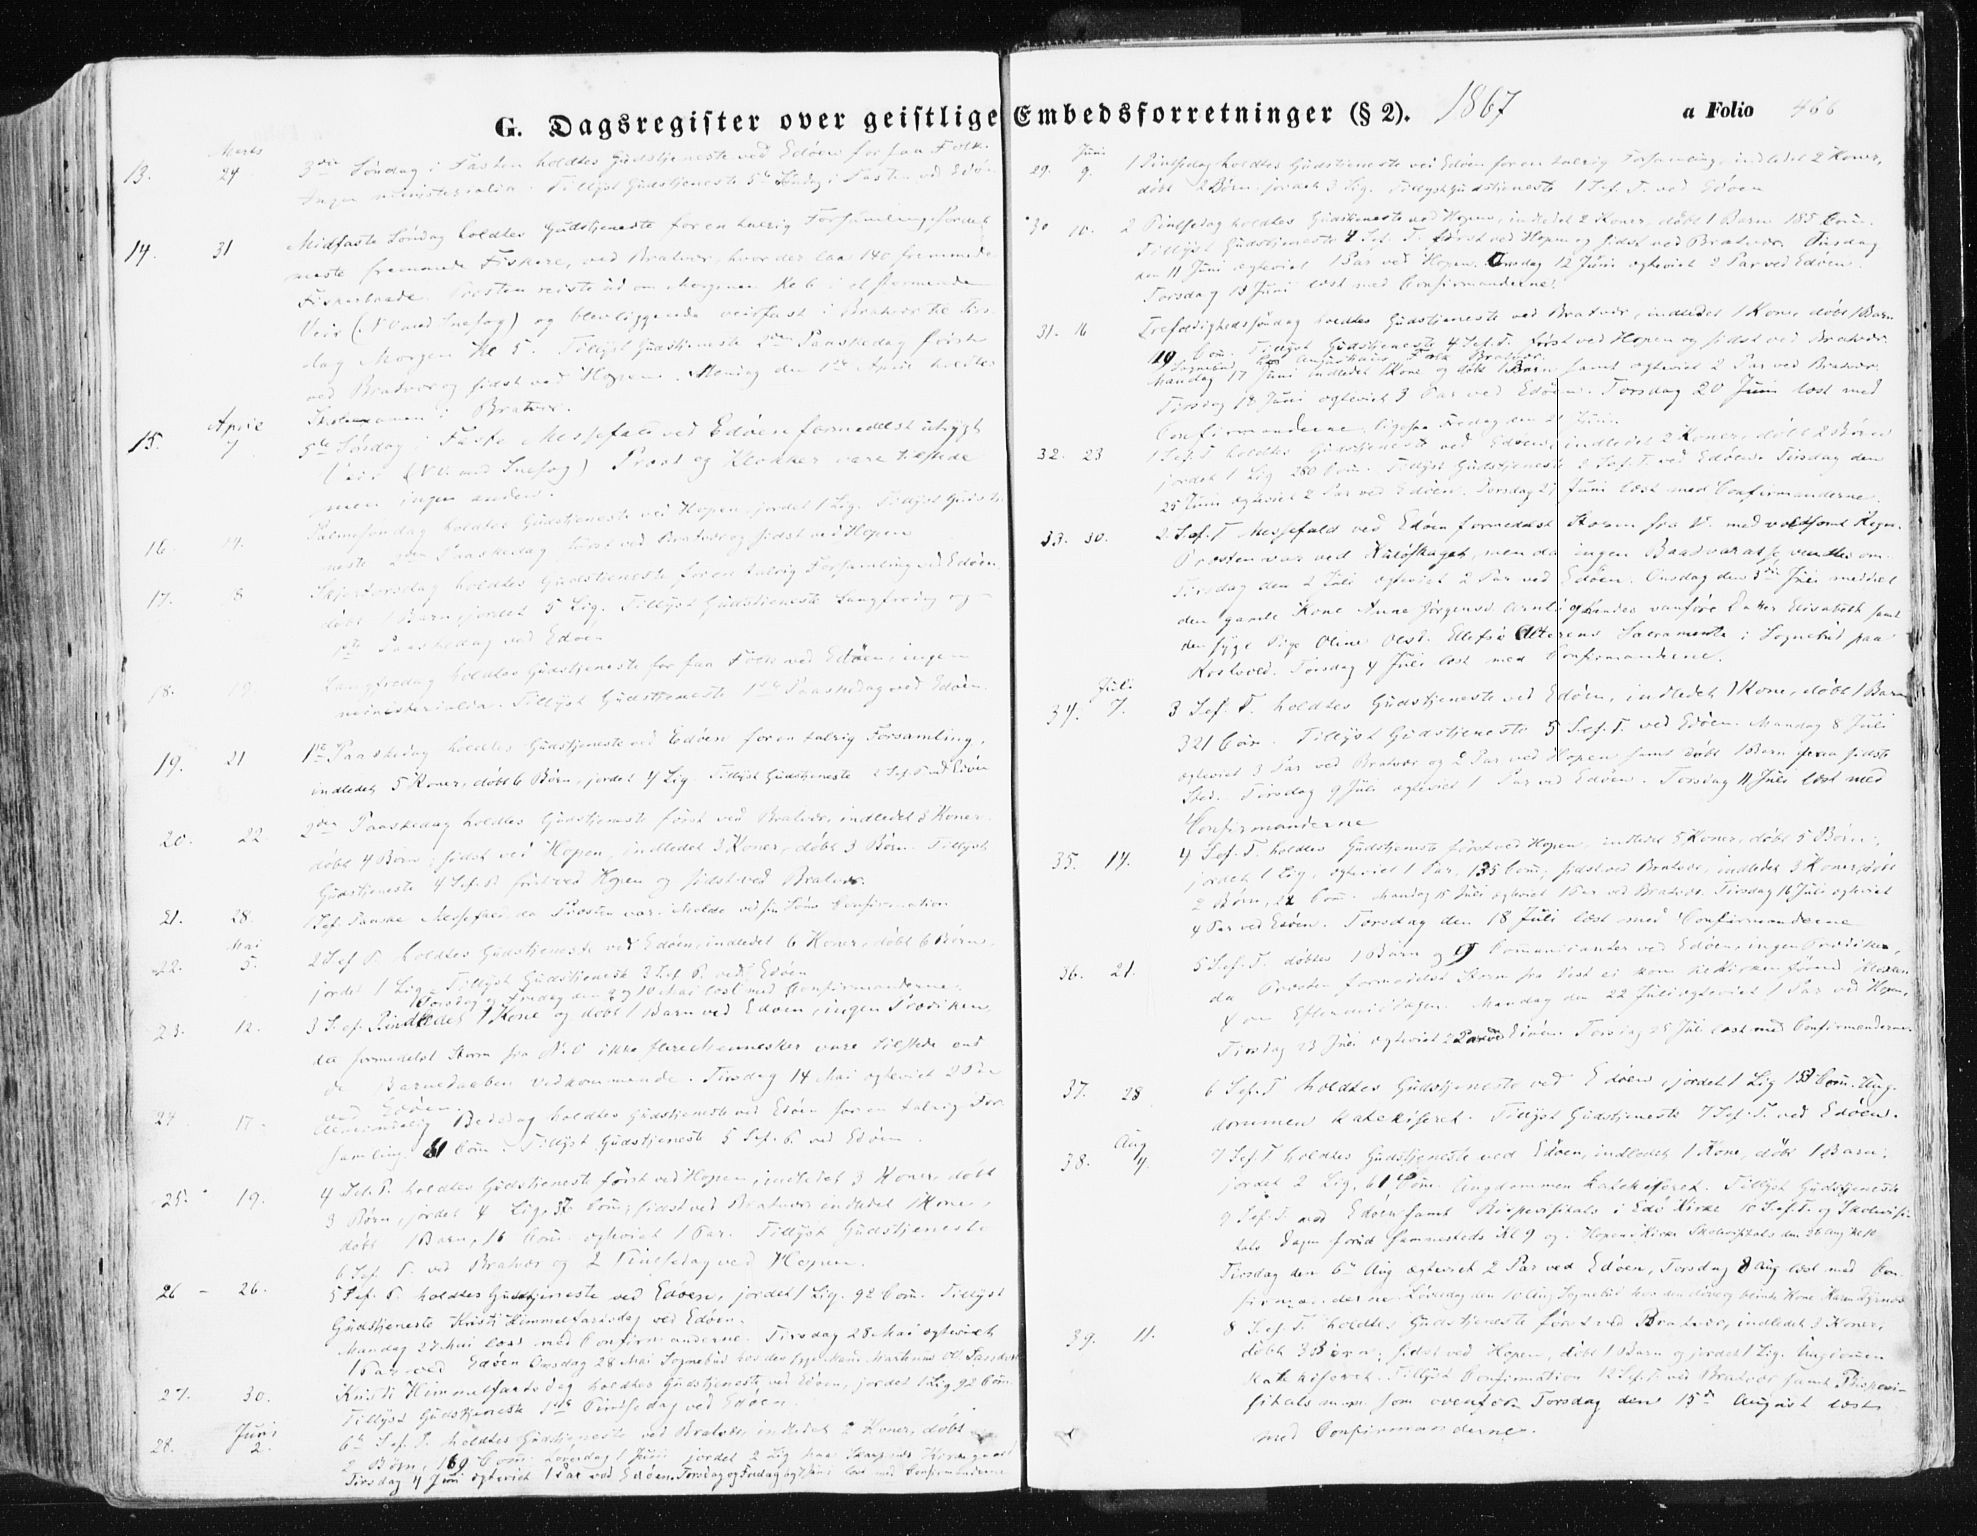 G. Dagsregister over geistlige Embedsforretninger (§ 2). 1867 a Folio 466
Marts
13. 24 3die Søndag i Fasten holdtes Gudstjeneste ved Edøen for faa Folk.
Ingen ministerialia. Tillyst Gudstjeneste 5te Søndag i Fasten ved Edøen
14. 31 Midfaste Søndag holdtes Gudstjeneste for en talrig Forsamling,
meste fremmede Fiskere, ved Bratvær, hvor der laae 140 fremmede
Fiskerbaade. Presten reiste ud om Morgenen Kl 6 i et stormende
Veir (NV med Snefog) og blev liggende veirfast i Bratvær til Tirs
dag Morgen Kl 5. Tillyst Gudstjeneste 2den Paaskedag først
ved Bratvær og sidst ved Hopen. Mandag den 1ste April holdtes
Skolexamen i Bratvær.
April
15. 7 5te Søndag i Faste Messefald ved Edøen formedelst utrygt
Veir (NV med Snefog) Prest og Klokker vare tilstede
men ingen anden.
16. 14. Palmesøndag holdtes Gudstjeneste ved Hopen, jordet 1 Lig. Tillyst Gudstje
neste 2den Paaskedag først ved Bratvær og sidst ved Hopen
17. 18 Skjertorsdag holdtes Gudstjeneste for en talrig Forsamling ved Edøen,
døbt 1 Barn, jordet 5 Lig. Tillyst Gudstjeneste Langfredag og
1ste Paaskedag ved Edøen
18. 19 Langfredag holdtes Gudstjeneste for faa Folk ved Edøen, ingen
ministerialia. Tillyst Gudstjeneste 1ste Paaskedag ved Edøen.
19. 21 1ste Paaskedag holdtes Gudstjeneste ved Edøen for en talrig Forsamling,
indledet 5 Koner, døbt 6 Børn, jordet 4 Lig. Tillyst Gudstjeneste 2 S.ef.P. ved Edøen
20. 22. 2den Paaskedag holdtes Gudstjeneste først ved Bratvær, indledet 3 Koner
døbt 4 Børn; sidst ved Hopen, indledet 3 Koner, døbt 3 Børn. Tillyst
Gudstjeneste 4 S.ef.P. først ved Hopen og sidst ved Bratvær.
21. 28. 1 S.ef. Paaske Messefald, da Presten var i Molde ved sin Søns Confirmation
Mai
22. 5. 2 S.ef P. holdtes Gudstjeneste ved Edøen, indledet 6 Koner, døbt 6 Børn,
jordet 1 Lig. Tillyst Gudstjeneste 3 S.ef P. ved Edøen
Torsdag og Fredag den 9 og 10 Mai læst med Confirmanderne.
23. 12. 3 S.ef. P. indledet 1 Kone og døbt 1 Barn ved Edøen, ingen Prædiken
da formedelst Storm fra N.V ikke flere Mennesker vare tilstede end
de Barnedaaben vedkommende. Tirsdag 14 Mai ægteviet 2 Par
ved Edøen.
24. 17. Almindelig Bededag holdtes Gudstjeneste ved Edøen for en talrig For
samling 81 Com. Tillyst Gudstjeneste 5 S.ef.P. ved Edøen.
25. 19. 4 S.ef.P. holdtes Gudstjeneste først ved Hopen, indledet 3 Koner, døbt
3 Børn, jordet 4 Lig, 36 Com; sidst ved Bratvær indledet 1 Kone,
døbt 1 Barn, 16 Com. ægteviet 1 Par. Tillyst Gudstjeneste
6 S.ef. P. ved Bratvær og 2 Pintsedag ved Hopen.
26 - 26. 5 S.ef. P. holdtes Gudstjeneste ved Edøen, jordet 1 Lig. 92 Com. Tillyst
Gudstjeneste Kristi Himmelfartsdag ved Edøen.
Mandag 27 Mai læst med Confirmanderne. Tirsdag 28 Mai ægteviet
1 Par ved Edøen Onsdag 28 Mai Sognebud hos den syge Mand Markus
27. 30. Kristi Himmelfartsdag holdtes Gudstjeneste ved Edøen, jordet 1 Lig 92 Com.
Tillyst Gudstjeneste 1ste Pintsedag ved Edøen.
Juni
28. 2. 6te S.ef. P. holdtes Gudstjeneste ved Bratvær indledet 2 Koner, døbt
2 Børn, 169 Com. Løverdag 1 Juni jordet 2 Lig paa Kirkegaard
Tirsdag 4 Juni ægteviet 1 Par ved Edøen. Torsdag og Fredag læst med Confirmanderne
Juni
29. 9. 1 Pintsedag holdtes Gudstjeneste ved Edøen for en talrig Forsamling, indledet 2 Koner,
døbt 2 Børn, jordet 3 Lig. Tillyst Gudstjeneste 1 S.ef.T. ved Edøen
30 10. 2 Pintsedag holdtes Gudstjeneste ved Hopen, indledet 2 Koner, døbt 1 Barn 185 Com.
Tillyst Gudstjeneste 4 S.ef. T. først ved Hopen og sidst ved Bratvær. Tirsdag
den 11 Juni ægteviet 1 Par ved Hopen. Onsdag 12 Juni ægteviet 2 Par ved Edøen.
Torsdag 13 Juni læst med Confirmanderne.
31. 16 Trefoldighedssøndag holdtes Gudstjeneste ved Bratvær, indledet 1 Kone, døbt 1 Barn
119 Com. Tillyst Gudstjeneste 4 S.ef.T. først ved Hopen og sidst ved Bratvær.
Mandag 17 Juni indledet 1 Kone og døbt 1 Barn samt ægteviet 2 Par ved Bratvær.
Tirsdag 18 Juni ægteviet 3 Par ved Edøen. Torsdag 20 Juni læst med
Confirmanderne, ligesaa Fredag den 21 Juni.
32. 23 1 S.ef.T. holdtes Gudstjeneste ved Edøen, indledet 2 Koner, døbt 2 Børn
jordet 1 Lig 280 Com. Tillyst Gudstjeneste 2 S.ef.T. ved Edøen. Tirsdag den
25 Juni ægteviet 2 Par ved Edøen. Torsdag 27 Juni læst med Confirmanderne.
33. 30. 2 S.ef. T Messefald ved Edøen formedelst Storm fra V. med voldsomt Regn.
Presten var ved men da ingen Baad var at se vendtes om.
Tirsdag den 2 Juli ægteviet 2 Par ved Edøen. Onsdag den 3die Juli meddelt
den gamle Kone Anne Jørgensd. og hendes vanføre Datter Elisabeth samt
den syge Pige Oline Olsd. Ellefsø Alterens Sacramente i Sognebud paa
Torsdag 4 Juli læst med Confirmanderne.
Juli
34. 7. 3 S.ef. T. holdtes Gudstjeneste ved Edøen, indledet 1 Kone, døbt 1 Barn
321 Com. Tillyst Gudstjeneste 5 S.ef.T. ved Edøen. Mandag 8 Juli
ægteviet 3 Par ved Bratvær og 2 Par ved Hopen samt døbt 1 Barn paa sidste
Sted. Tirsdag 9 Juli ægteviet 1 Par ved Edøen. Torsdag 11 Juli læst med
Confirmanderne
35. 14. 4 S.ef. T. holdtes Gudstjeneste først ved Hopen, indledet 5 Koner, døbt 5 Børn,
jordet 1 Lig, ægteviet 1 Par, 135 Com; sidst ved Bratvær, indledet 3 Koner, døbt
2 Børn, 22 Com. Mandag 15 Juli ægteviet 1 Par ved Bratvær. Tirsdag 16 Juli ægteviet
4 Par ved Edøen. Torsdag den 18 Juli læst med Confirmanderne
36. 21. 5 S.ef.T. døbtes 1 Barn og 9 Comunicanter ved Edøen, ingen Prædiken,
da Presten formedelst Storm fra Vest ei kom til Kirken førend Klokken
4 om Eftermiddagen. Mandag den 22 Juli ægteviet 1 Par ved Hopen,
Tirsdag 23 Juli ægteviet 2 Par ved Edøen. Torsdag 25 Juli læst med Confirmanderne.
37. 28 6 S.ef.T holdtes Gudstjeneste ved Edøen, jordet 1 Lig 153 Com. Ung-
dommen katekiseret. Tillyst Gudstjeneste 7 S.ef.T. ved Edøen.
Aug
38. 4. 7 S.ef.T holdtes Gudstjeneste ved Edøen, indledet 1 Kone, døbt 1 Barn,
jordet 2 Lig, 61 Com. Ungdommen katekiseret. Tillyst Gudstjeneste
9 S.ef.T. ved Edøen samt Bispevisitats i Edø Kirke 10 S.ef.T. og Skolevisi
tats Dagen forud sammesteds Kl 9 og i Hopen Kirke Skolevisitats den 26 Aug Kl 10
Tirsdag den 6te Aug ægteviet 2 Par ved Edøen, Torsdag 8 Aug læst med Con
firmanderne. Løverdag den 10 Aug Sognebud hos den Kone
39. 11. 8 S.ef.T. holdtes Gudstjeneste først ved Bratvær, indledet 3 Koner,
døbt 3 Børn; sidst ved Hopen, døbt 1 Barn og jordet 1 Lig. Ungdommen
katekiseret. Tillyst Confirmation 12 S.ef.T. ved Bratvær samt Bispevi-
sitats m.m. som ovenfor. Torsdag den 15de August læst
med Confirmanderne.